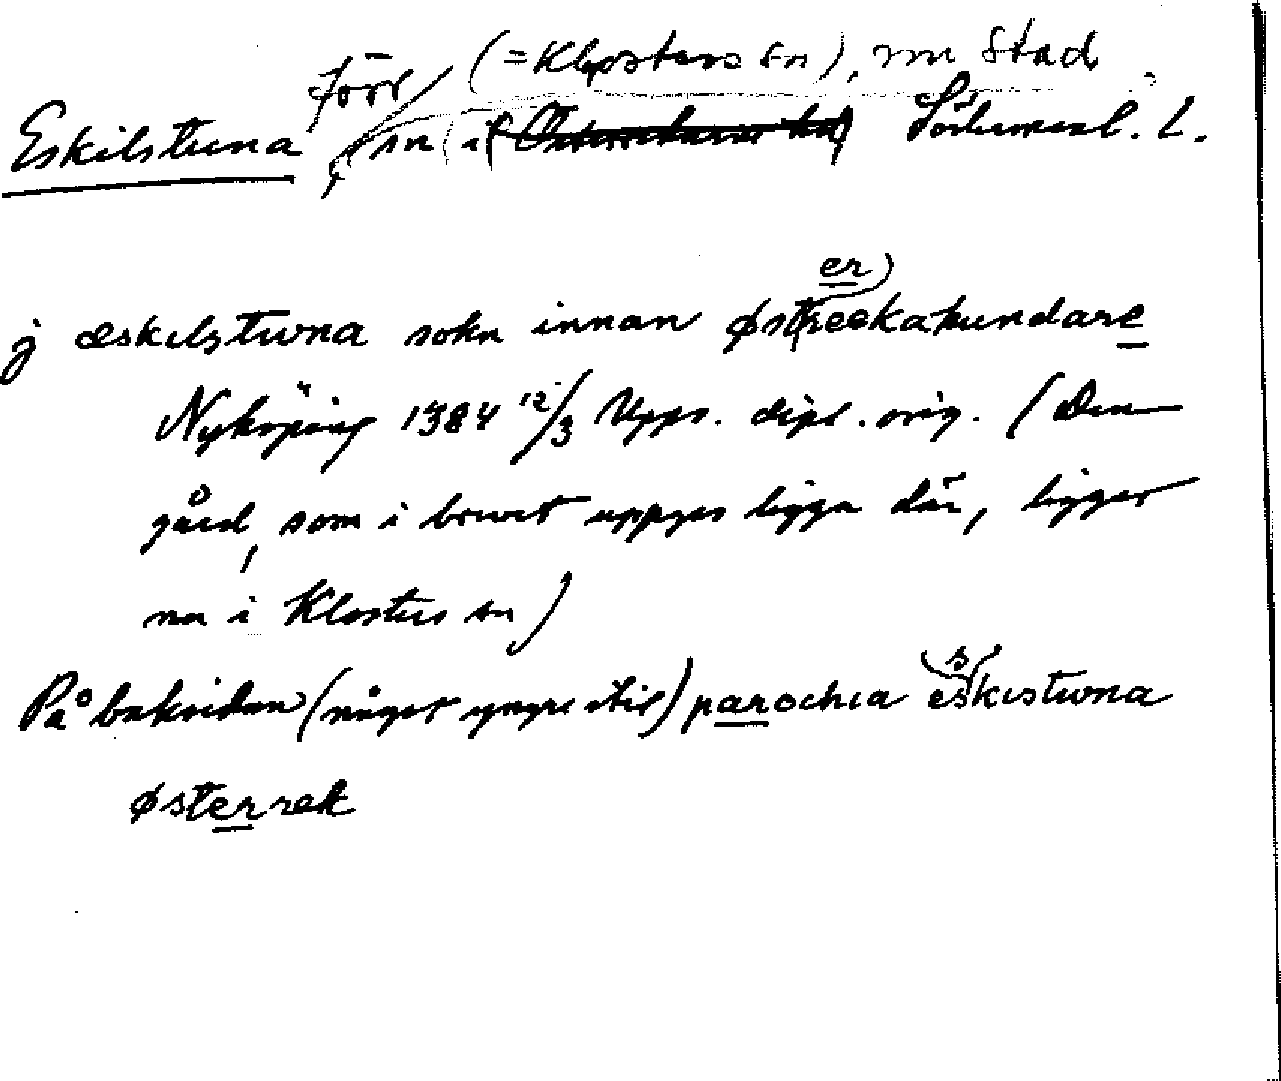 förr (=Klosters sn), nu Stad
Eskilstuna, sn i Södermanl. l.
j æskilstwna sokn innan østreekahundare
er)
Nyköping 1384 12/3 Upps. dipl. orig. (Den
gård, som i brevet uppges ligga där, ligger
nu i Klosters sn)
På baksidan (något yngre stil) parochia eskistwna
s
østerrek